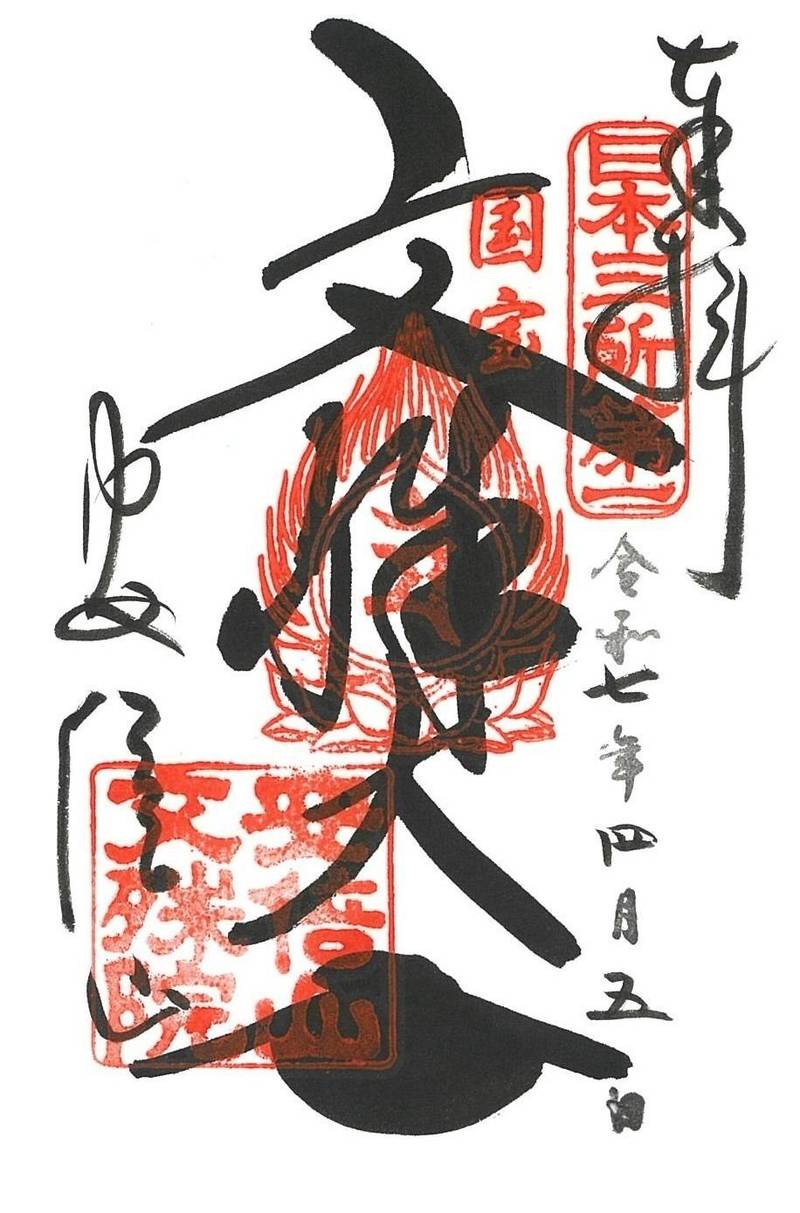 奉拝
日本三所第一
令和七年四月五日
国宝
文殊
安倍山
安倍山
文殊院